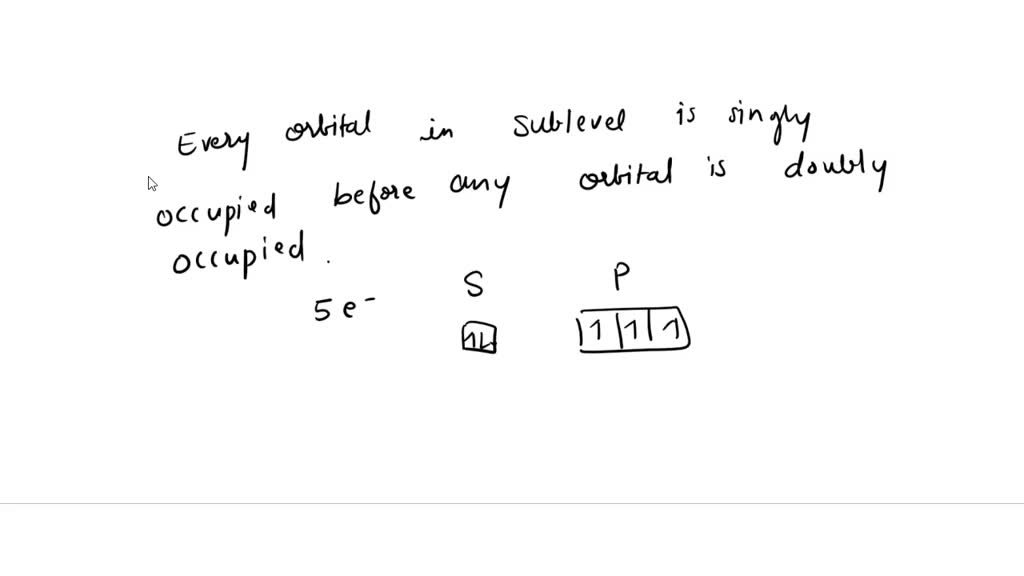 Every orbital in sublevel is singly
occupied before any orbital is doubly
occupied.
5e⁻ S P
1L 1 1 1